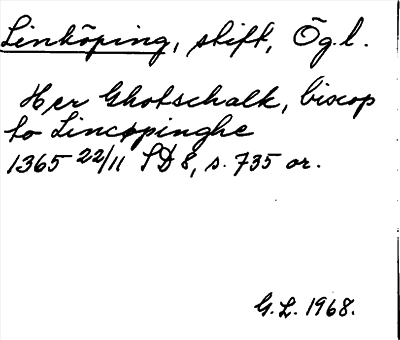 Linköping, stift, Ög.l.
Her Ghotschalk, biscop
to Lincøpinghe
1365 22/11 SD 8, s. 735 or.
G.L. 1968.